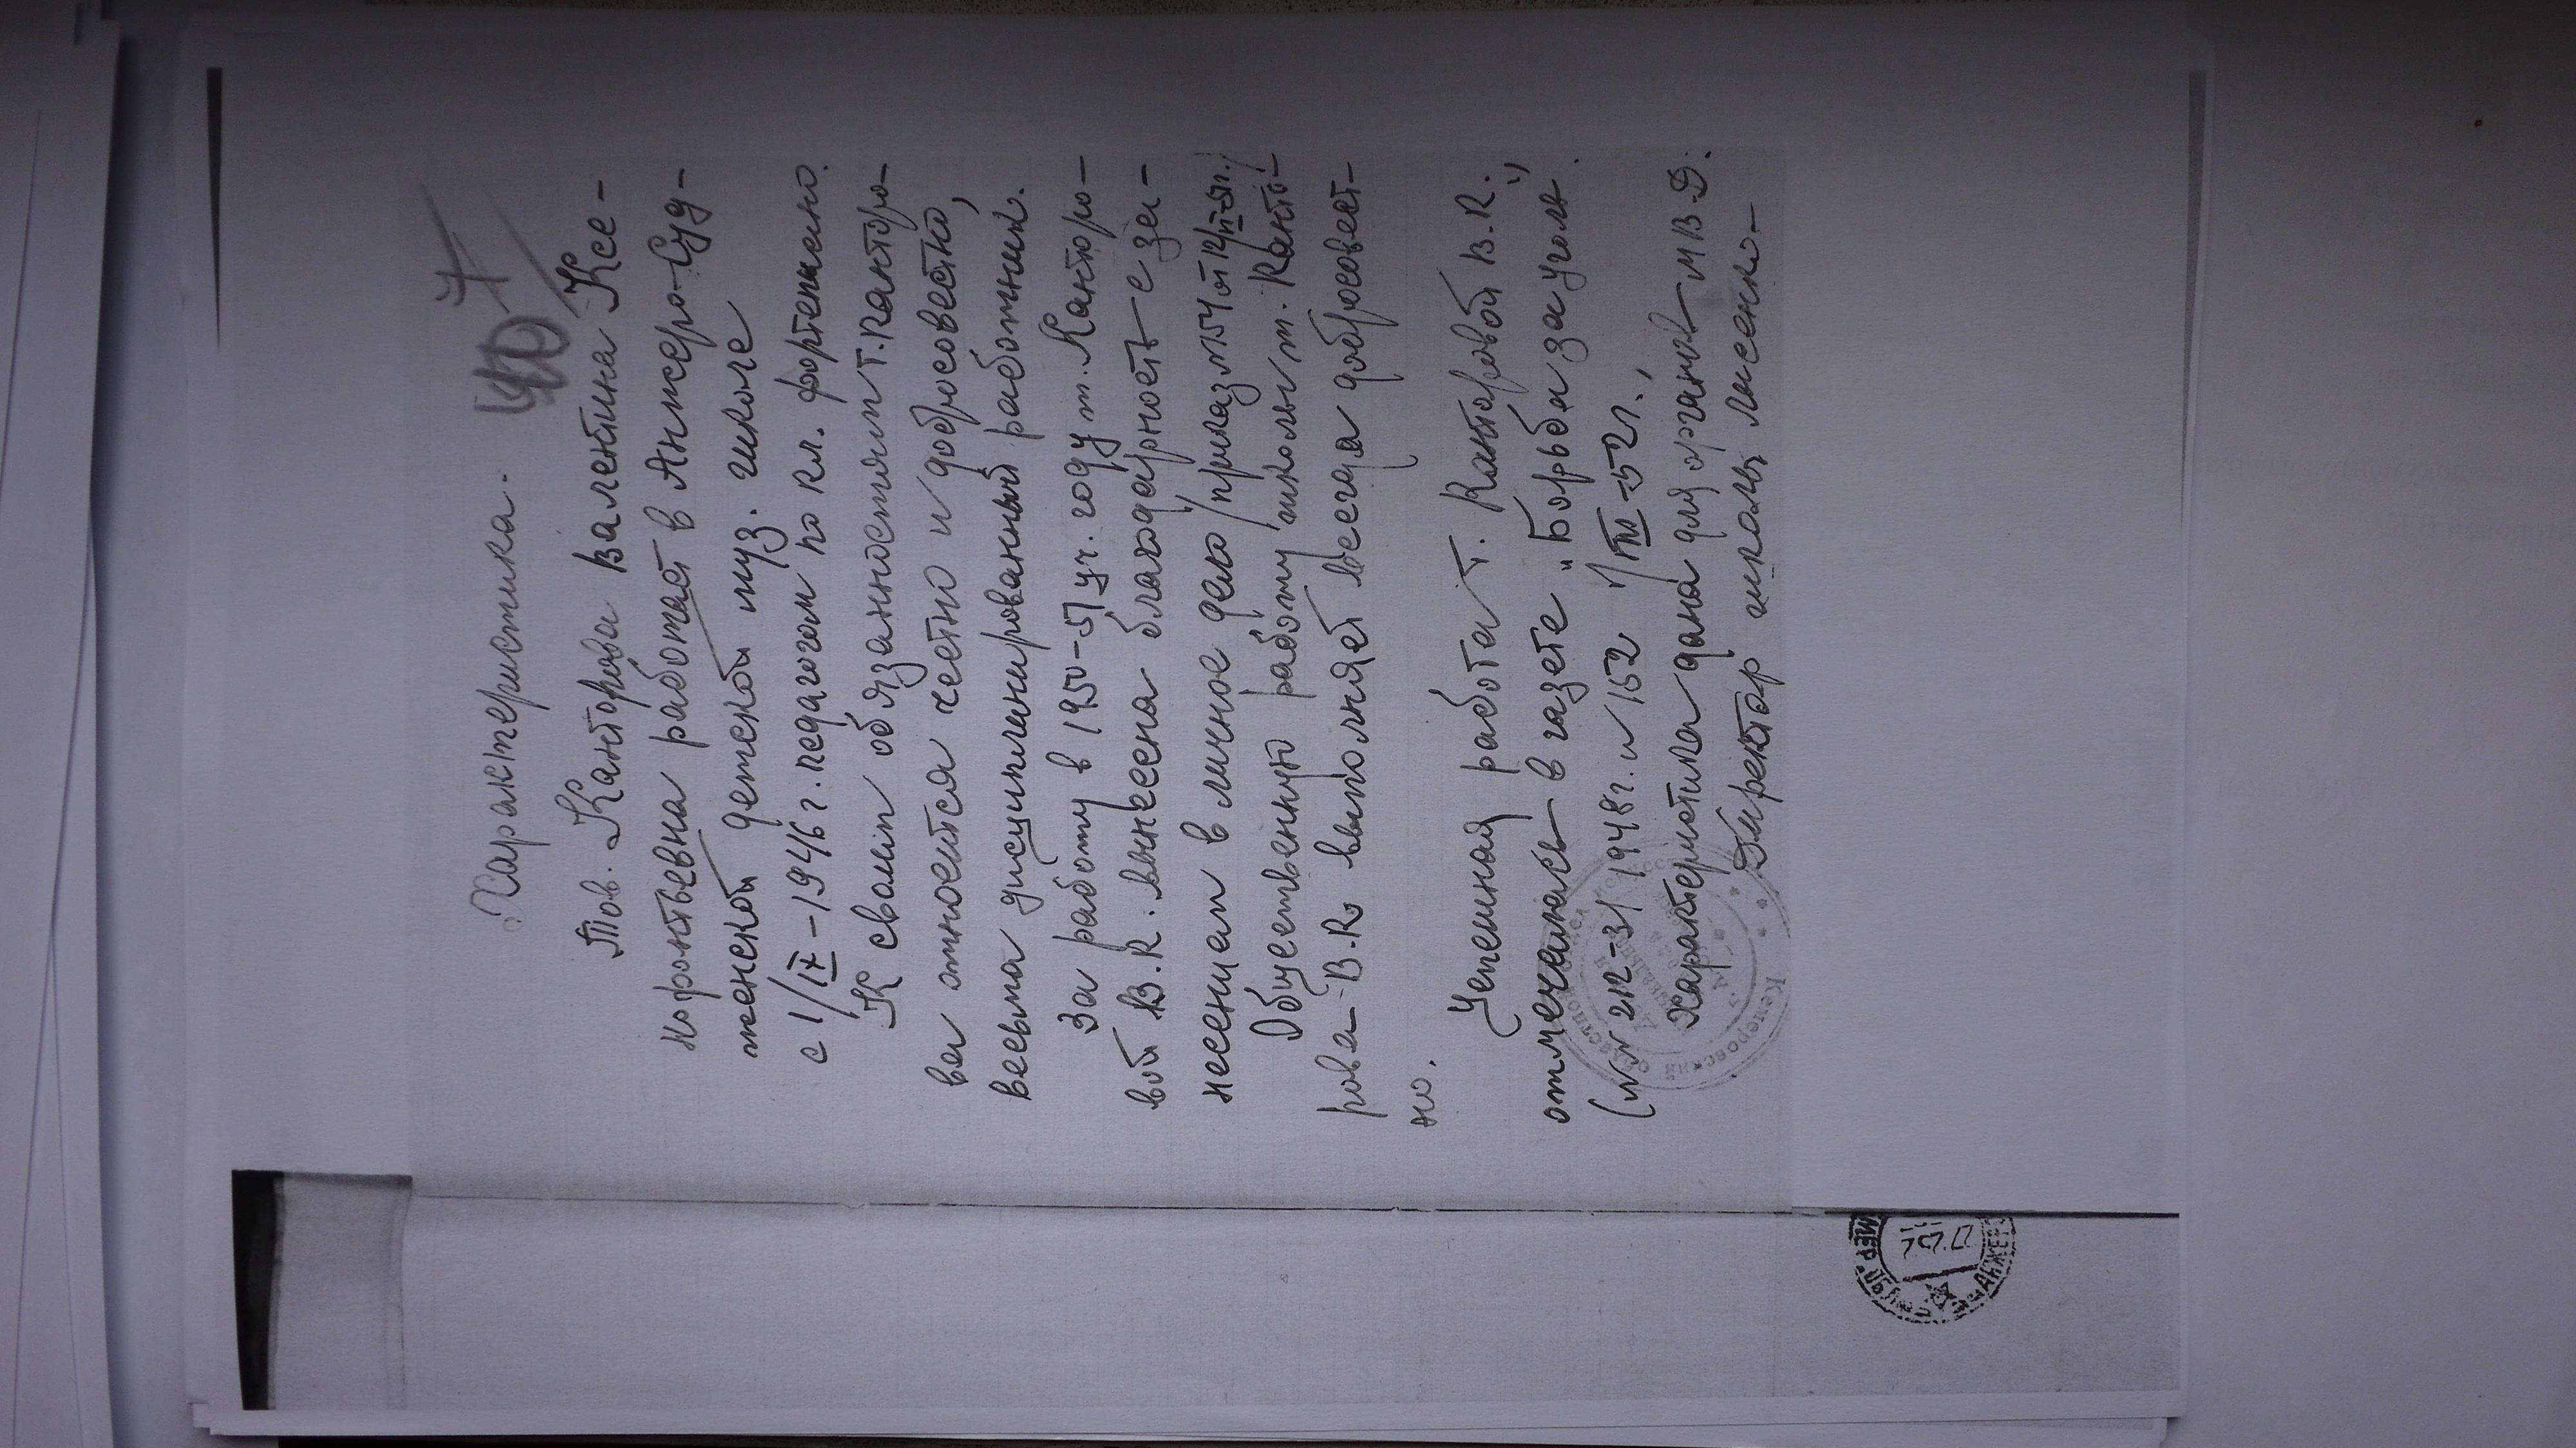 7
40
Характеристика.
Тов. Канторова Валентина Ксе-
нофонтьевна работает в Анжеро-Суд-
женской детской муз. школе
с 1/IX-1946 г. педагогом по кл. фортепиано.
К своим обязанностям т. Канторо-
ва относится честно и добросовестно,
весьма дисциплинированный работник.
За работу в 1950-51 уч. году т. Канторо-
вой В.К. вынесена благодарность с за-
несением в личное дело /приказ №54 от 12/
Общественную работу школы т. Канто-
рова В.К. выполняет всегда добросовест-
но.
Успешная работа т. Канторовой В.К.
отмечалась в газете „Борьба за уголь"
(№№ 212-31 1948 г. и 152 1/VIII-52 г.,
Характеристика дана для органов МВД.
Директор школы Лысенко
Кемеровский